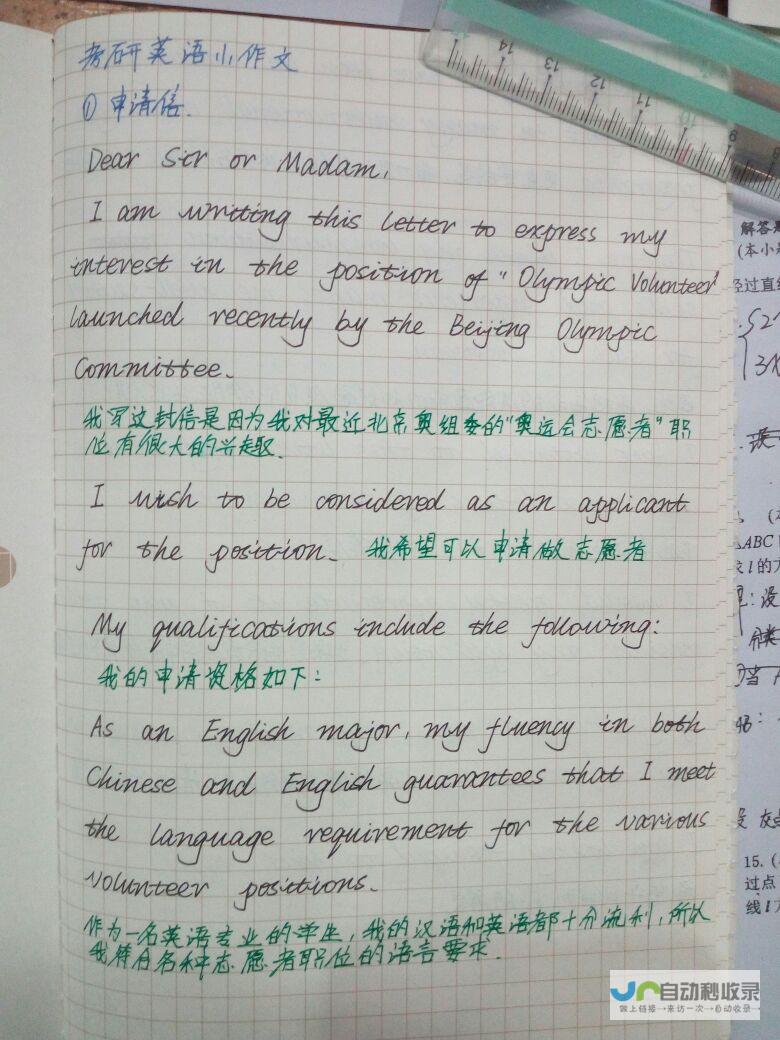 考研英语小作文
① 申请信.
Dear Sir or Madam,
I am writing this letter to express my
interest in the position of "Olympic Volunteer"
launched recently by the Beijing Olympic
Committee.
我写这封信是因为我对最近北京奥组委的"奥运会志愿者"职
位有很大的兴趣.
I wish to be considered as an applicant
for the position. 我希望可以申请做志愿者
My qualifications include the following:
我的申请资格如下:
As an English major, my fluency in both
Chinese and English guarantees that I meet
the language requirement for the various
volunteer positions.
作为一名英语专业的学生,我的汉语和英语都十分流利,所以
我符合各种志愿者职位的语言要求.
14 13 12 11 10 9 8
解答
(本小
经过直
ABC
l的
没
当
没 交点
15.(
过点
线l
自动秒收录
做上链接→来访一次→自动收录→